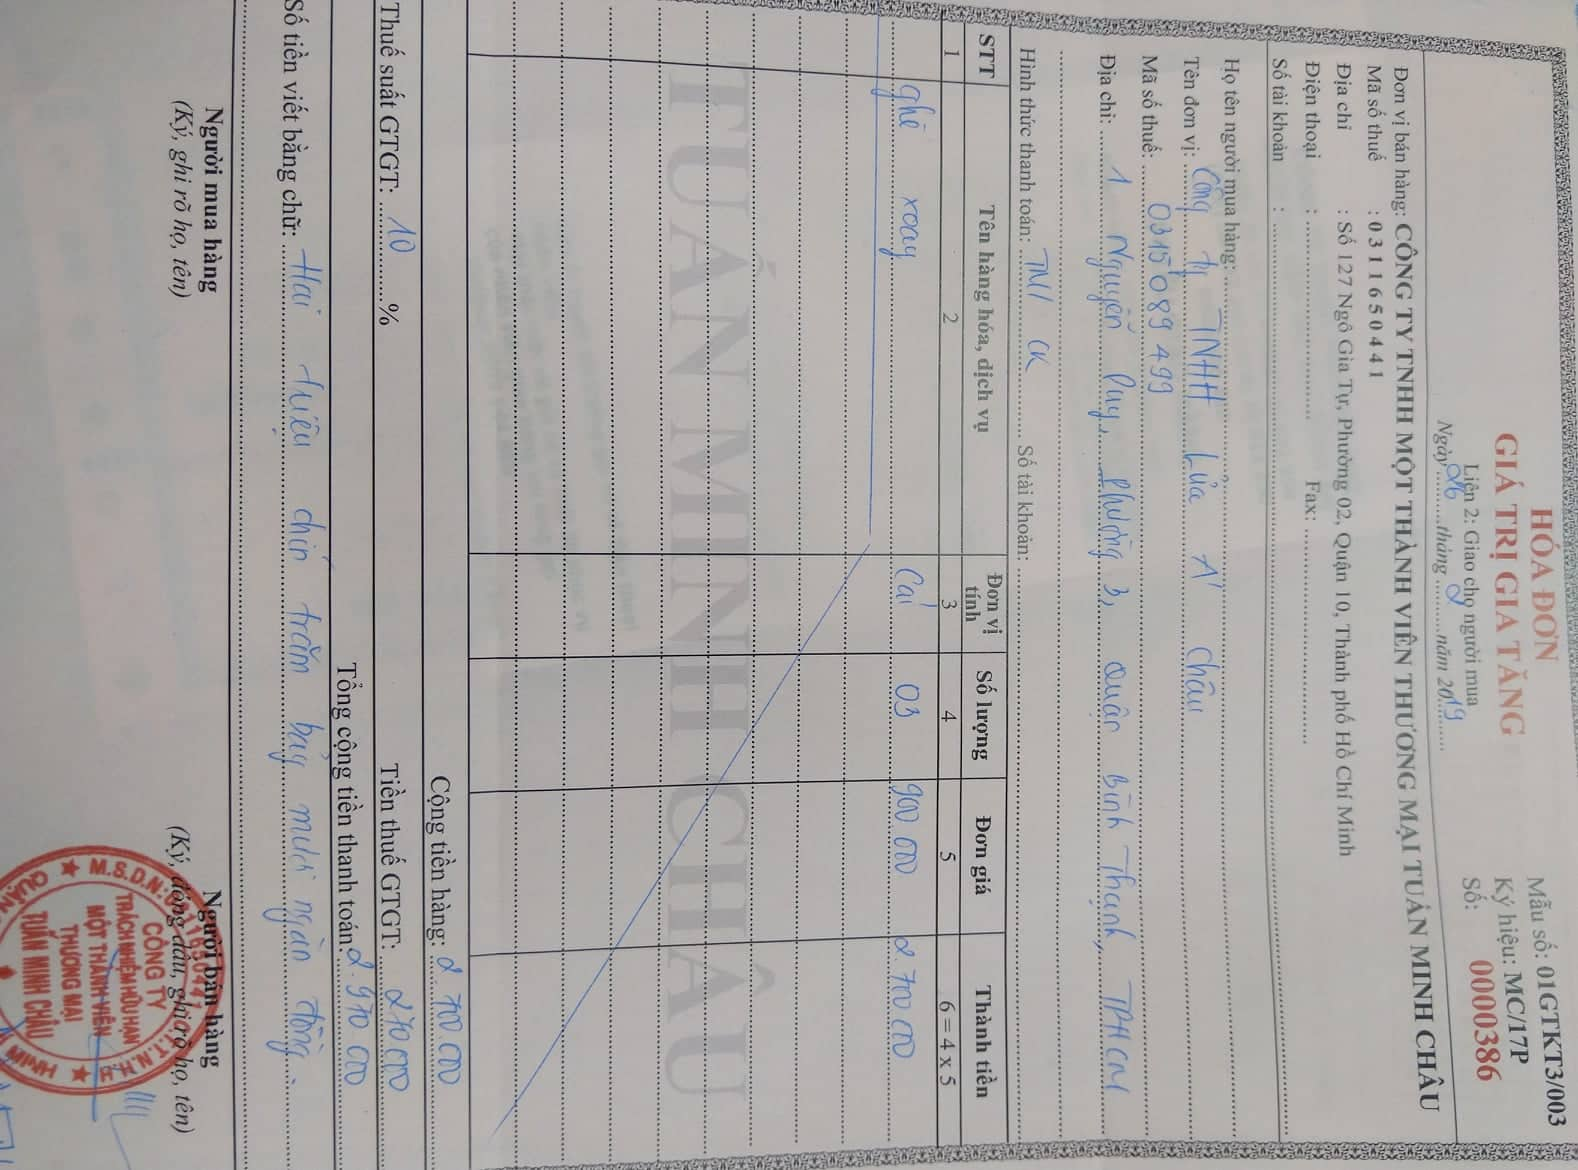 HÓA ĐƠN
GIÁ TRỊ GIA TĂNG
Liên 2: Giao cho người mua
Ngày 26 tháng 2 năm 2019
Mẫu số: 01GTKT3/003
Ký hiệu: MC/17P
Số: 0000386
Đơn vị bán hàng: CÔNG TY TNHH MỘT THÀNH VIÊN THƯƠNG MẠI TUẤN MINH CHÂU
Mã số thuế : 0311650441
Địa chỉ : Số 127 Ngô Gia Tự, Phường 02, Quận 10, Thành phố Hồ Chí Minh
Điện thoại : Fax:
Số tài khoản :
Họ tên người mua hàng:
Tên đơn vị: Công ty TNHH Lửa Á Châu
Mã số thuế: 0315089499
Địa chỉ: 1 Nguyễn Duy, Phường 3, Quận Bình Thạnh, TPHCM
Hình thức thanh toán: TM/CK Số tài khoản:
STT Tên hàng hóa, dịch vụ Đơn vị tính Số lượng Đơn giá Thành tiền
1 2 3 4 5 6 = 4 x 5
ghế xoay Cái 03 900 000 2 700 000
TUẤN MINH CHÂU
Cộng tiền hàng: 2 700.000
Thuế suất GTGT: 10 % Tiền thuế GTGT: 270 000
Tổng cộng tiền thanh toán: 2.970 000
Số tiền viết bằng chữ: Hai triệu chín trăm bảy mươi ngàn đồng.
Người mua hàng Người bán hàng
(Ký, ghi rõ họ, tên) (Ký, đóng dấu, ghi rõ họ, tên)
CÔNG TY
TRÁCH NHIỆM HỮU HẠN
MỘT THÀNH VIÊN
THƯƠNG MẠI
TUẤN MINH CHÂU